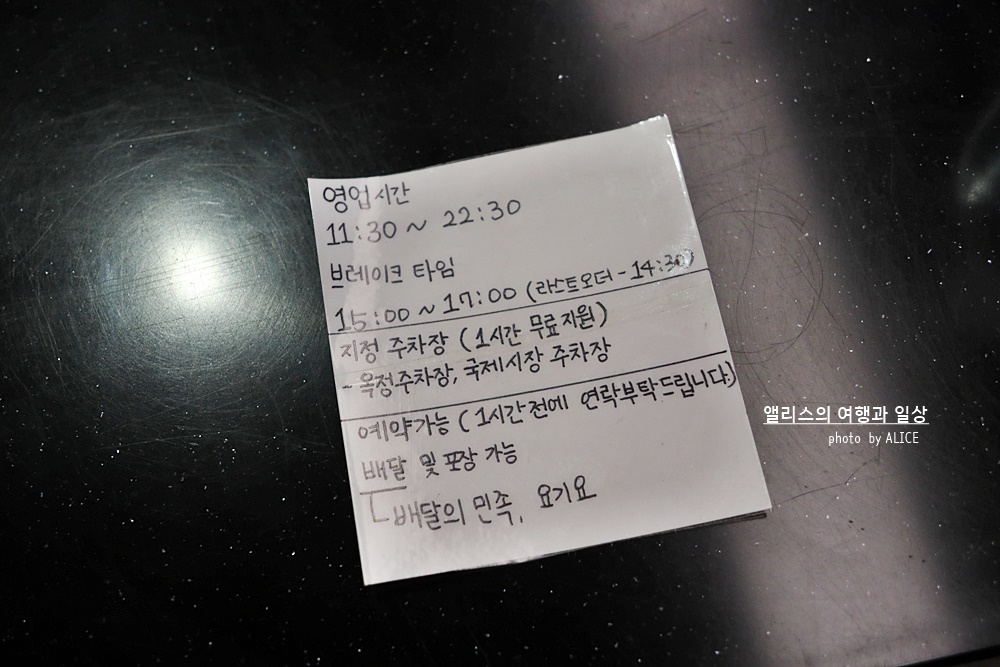 영업시간
11:30 ~ 22:30
브레이크 타임
15:00 ~ 17:00 (라스트오더 - 14:30)
지정 주차장 (1시간 무료지원)
- 옥정주차장, 국제시장 주차장
예약가능 (1시간전에 연락부탁드립니다.)
배달 및 포장 가능
배달의 민족, 요기요
앨리스의 여행과 일상
photo by ALICE